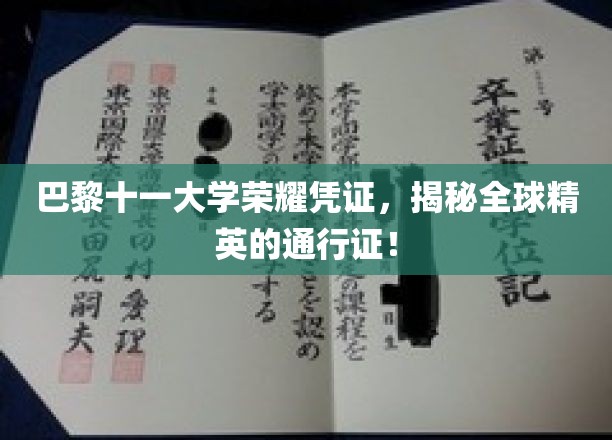 巴黎十一大学荣耀凭证，揭秘全球精
英的通行证！
第 号
卒業証 学位記
本学商学部 定の課程を
修めて本学 ことを認め
学士(商学)の する
平成
東京国際大学商 長 田村愛理
東京国際大 長田尻嗣夫